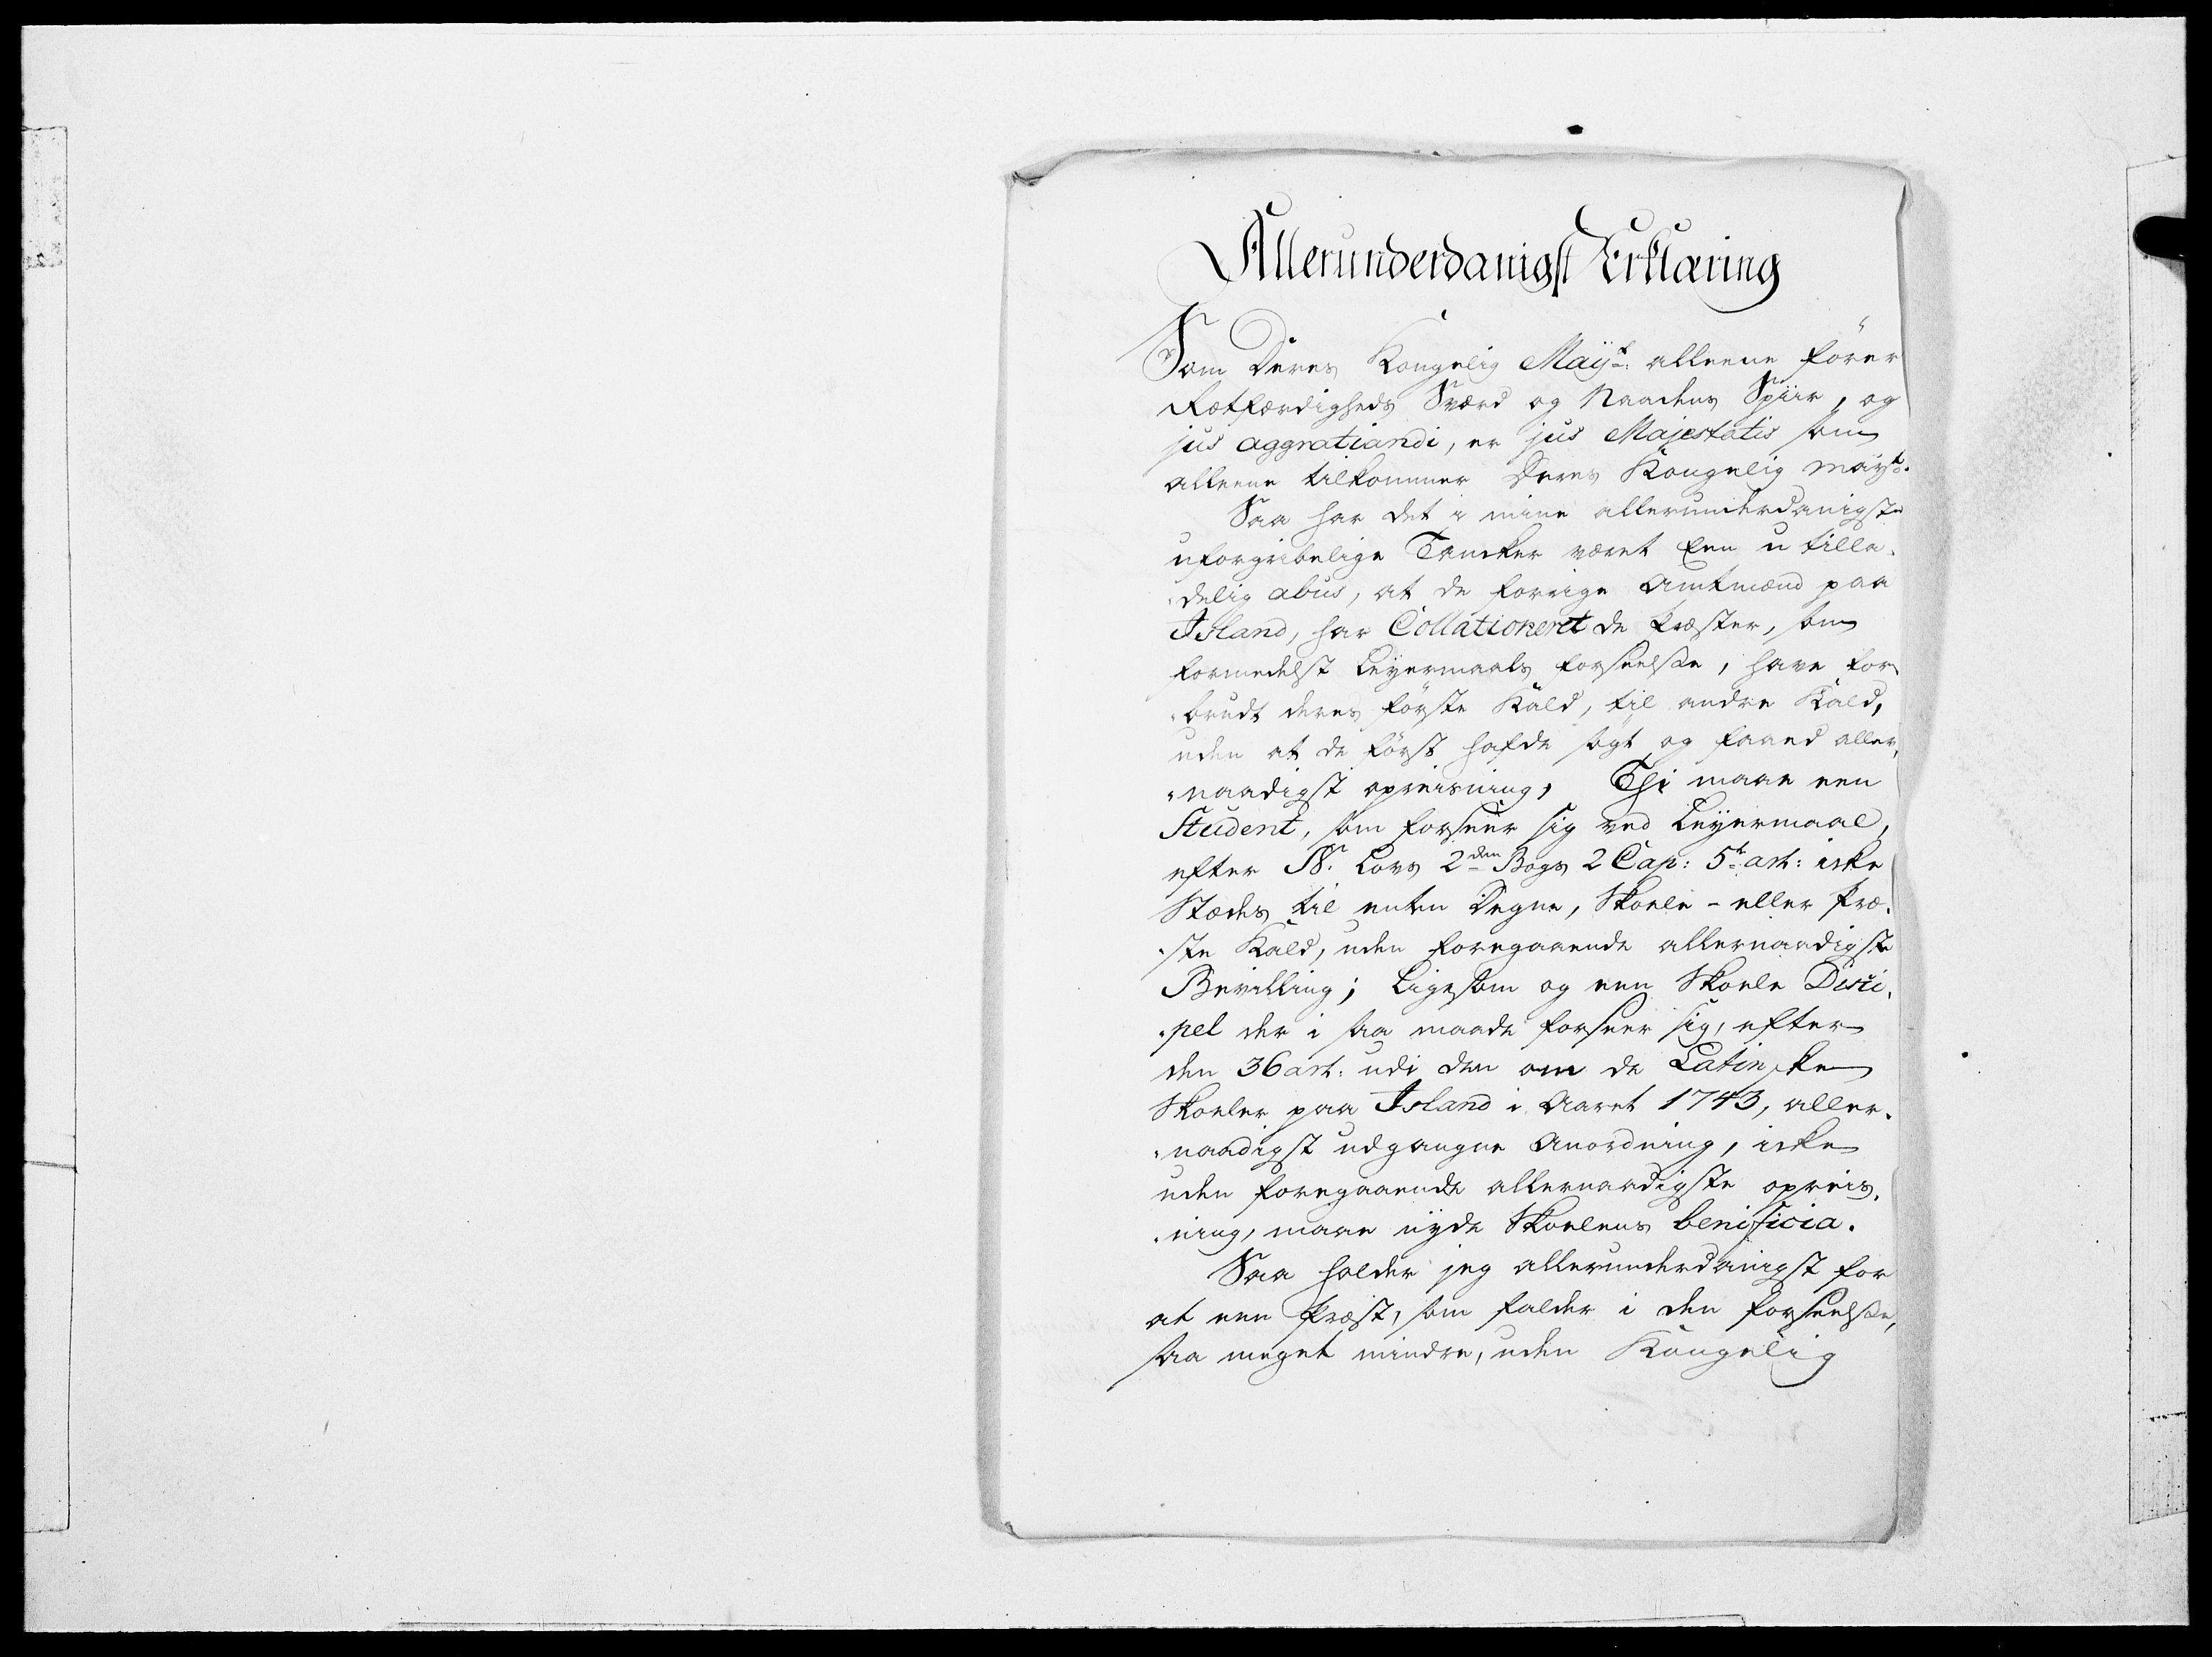 Allerunderdanigst Erklæring
Som Deres Kongelig Maÿt: alleene fører
Retfærdigheds Sværd og Naadens Spiir, og
jus aggratiandi, er jus Majestatis som
alleene tilkommer Deres Kongelig Maÿt:
Saa har det i mine allerunderdanigste
uforgribelige Tancker været Een u tilla-
delig abus, at de forrige Amtmænd paa
Island, har Collationeret de Præster, som
formedelst Leÿermaals forseelse, have for-
brudt deres første Kald, til andre Kald,
uden at de først hafde søgt og faaed aller-
naadigst opreisning, Thi maae een
Student, som forseer sig ved Leÿermaal,
efter N: Lovs 2den Bogs 2 Cap: 5t: art: icke
Stædes til enten Degne, Skoele - eller Præ-
ste Kald, uden foregaaende allernaadigste
Bevilling; Ligesom og een Skoele Disci-
pel der i saa maade forseer sig, efter
den 36 art: udi den om de Latinske
Skoeler paa Island i Aaret 1743, aller-
naadigst udgangne Anordning, icke
uden foregaaende allernaadigste opreis-
ning, maae nÿde Skoelens benificia.
Saa holder jeg allerunderdanigst for
at een Præst, som falder i den forseelse,
saa meget mindre, uden Kongelig